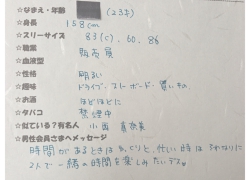 ☆なまえ・年齢 (23才)
☆身長 158cm
☆スリーサイズ 83(C), 60, 86
☆職業 販売員
☆血液型
☆性格 明るい
☆趣味 ドライブ・スノーボード・買いもの。
☆お酒 ほどほどに
☆タバコ 禁煙中
☆似ている?有名人 小西真奈美
☆男性会員さまへメッセージ
時間があるときはゆっくりと、忙しい時はそれなりに
2人で一緒の時間を楽しみたいデス